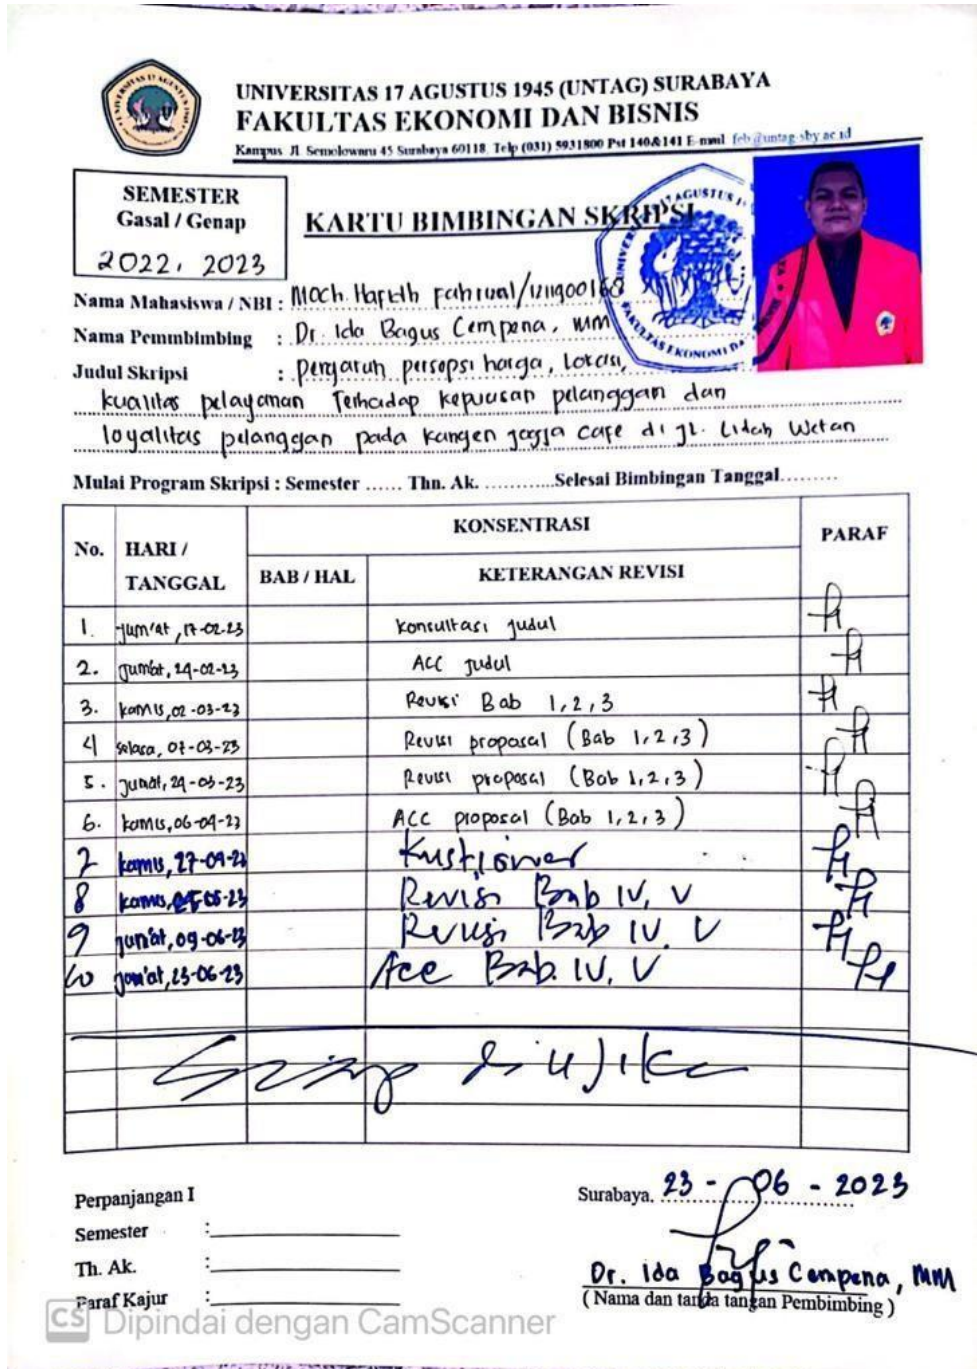 UNIVERSITAS 17 AGUSTUS 1945 (UNTAG) SURABAYA
FAKULTAS EKONOMI DAN BISNIS
Kampus Jl. Semolowaru 45 Surabaya 60118. Telp (031) 5931800 Pst 140&141 E-mail feb@untag-sby.ac.id
SEMESTER
Gasal / Genap
2022, 2023
KARTU BIMBINGAN SKRIPSI
Nama Mahasiswa / NBI : Moch. Hafidh Fahrival/1211900168
Nama Pemmbimbing : Dr. Ida Bagus Cempena, MM
Judul Skripsi : pengaruh persepsi harga, Lokasi,
kualitas pelayanan Terhadap kepuasan pelanggan dan
loyalitas pelanggan pada kangen jogja cafe di jl. Lidah Wetan
Mulai Program Skripsi : Semester ...... Thn. Ak. ............Selesai Bimbingan Tanggal.........
No. HARI / TANGGAL KONSENTRASI PARAF
BAB / HAL KETERANGAN REVISI
1. jum'at, 17-02-23 Konsultasi judul
2. jum'at, 24-02-23 ACC judul
3. kamis, 02-03-23 Revisi Bab 1,2,3
4 selasa, 07-03-23 Revisi proposal (Bab 1,2,3)
5. jumat, 24-03-23 Revisi proposal (Bab 1,2,3)
6. kamis, 06-04-23 ACC proposal (Bab 1,2,3)
7 kamis, 27-04-23 Kustioner
8 kamis, 05-23 Revisi Bab IV, V
9 jum'at, 09-06-23 Revisi Bab IV, V
10 jum'at, 23-06-23 Acc Bab. IV, V
Siap diujikan
Perpanjangan I
Semester :
Th. Ak. :
Paraf Kajur :
Surabaya. 23 - 06 - 2023
Dr. Ida Bagus Cempena, MM
( Nama dan tanda tangan Pembimbing )
CS Dipindai dengan CamScanner